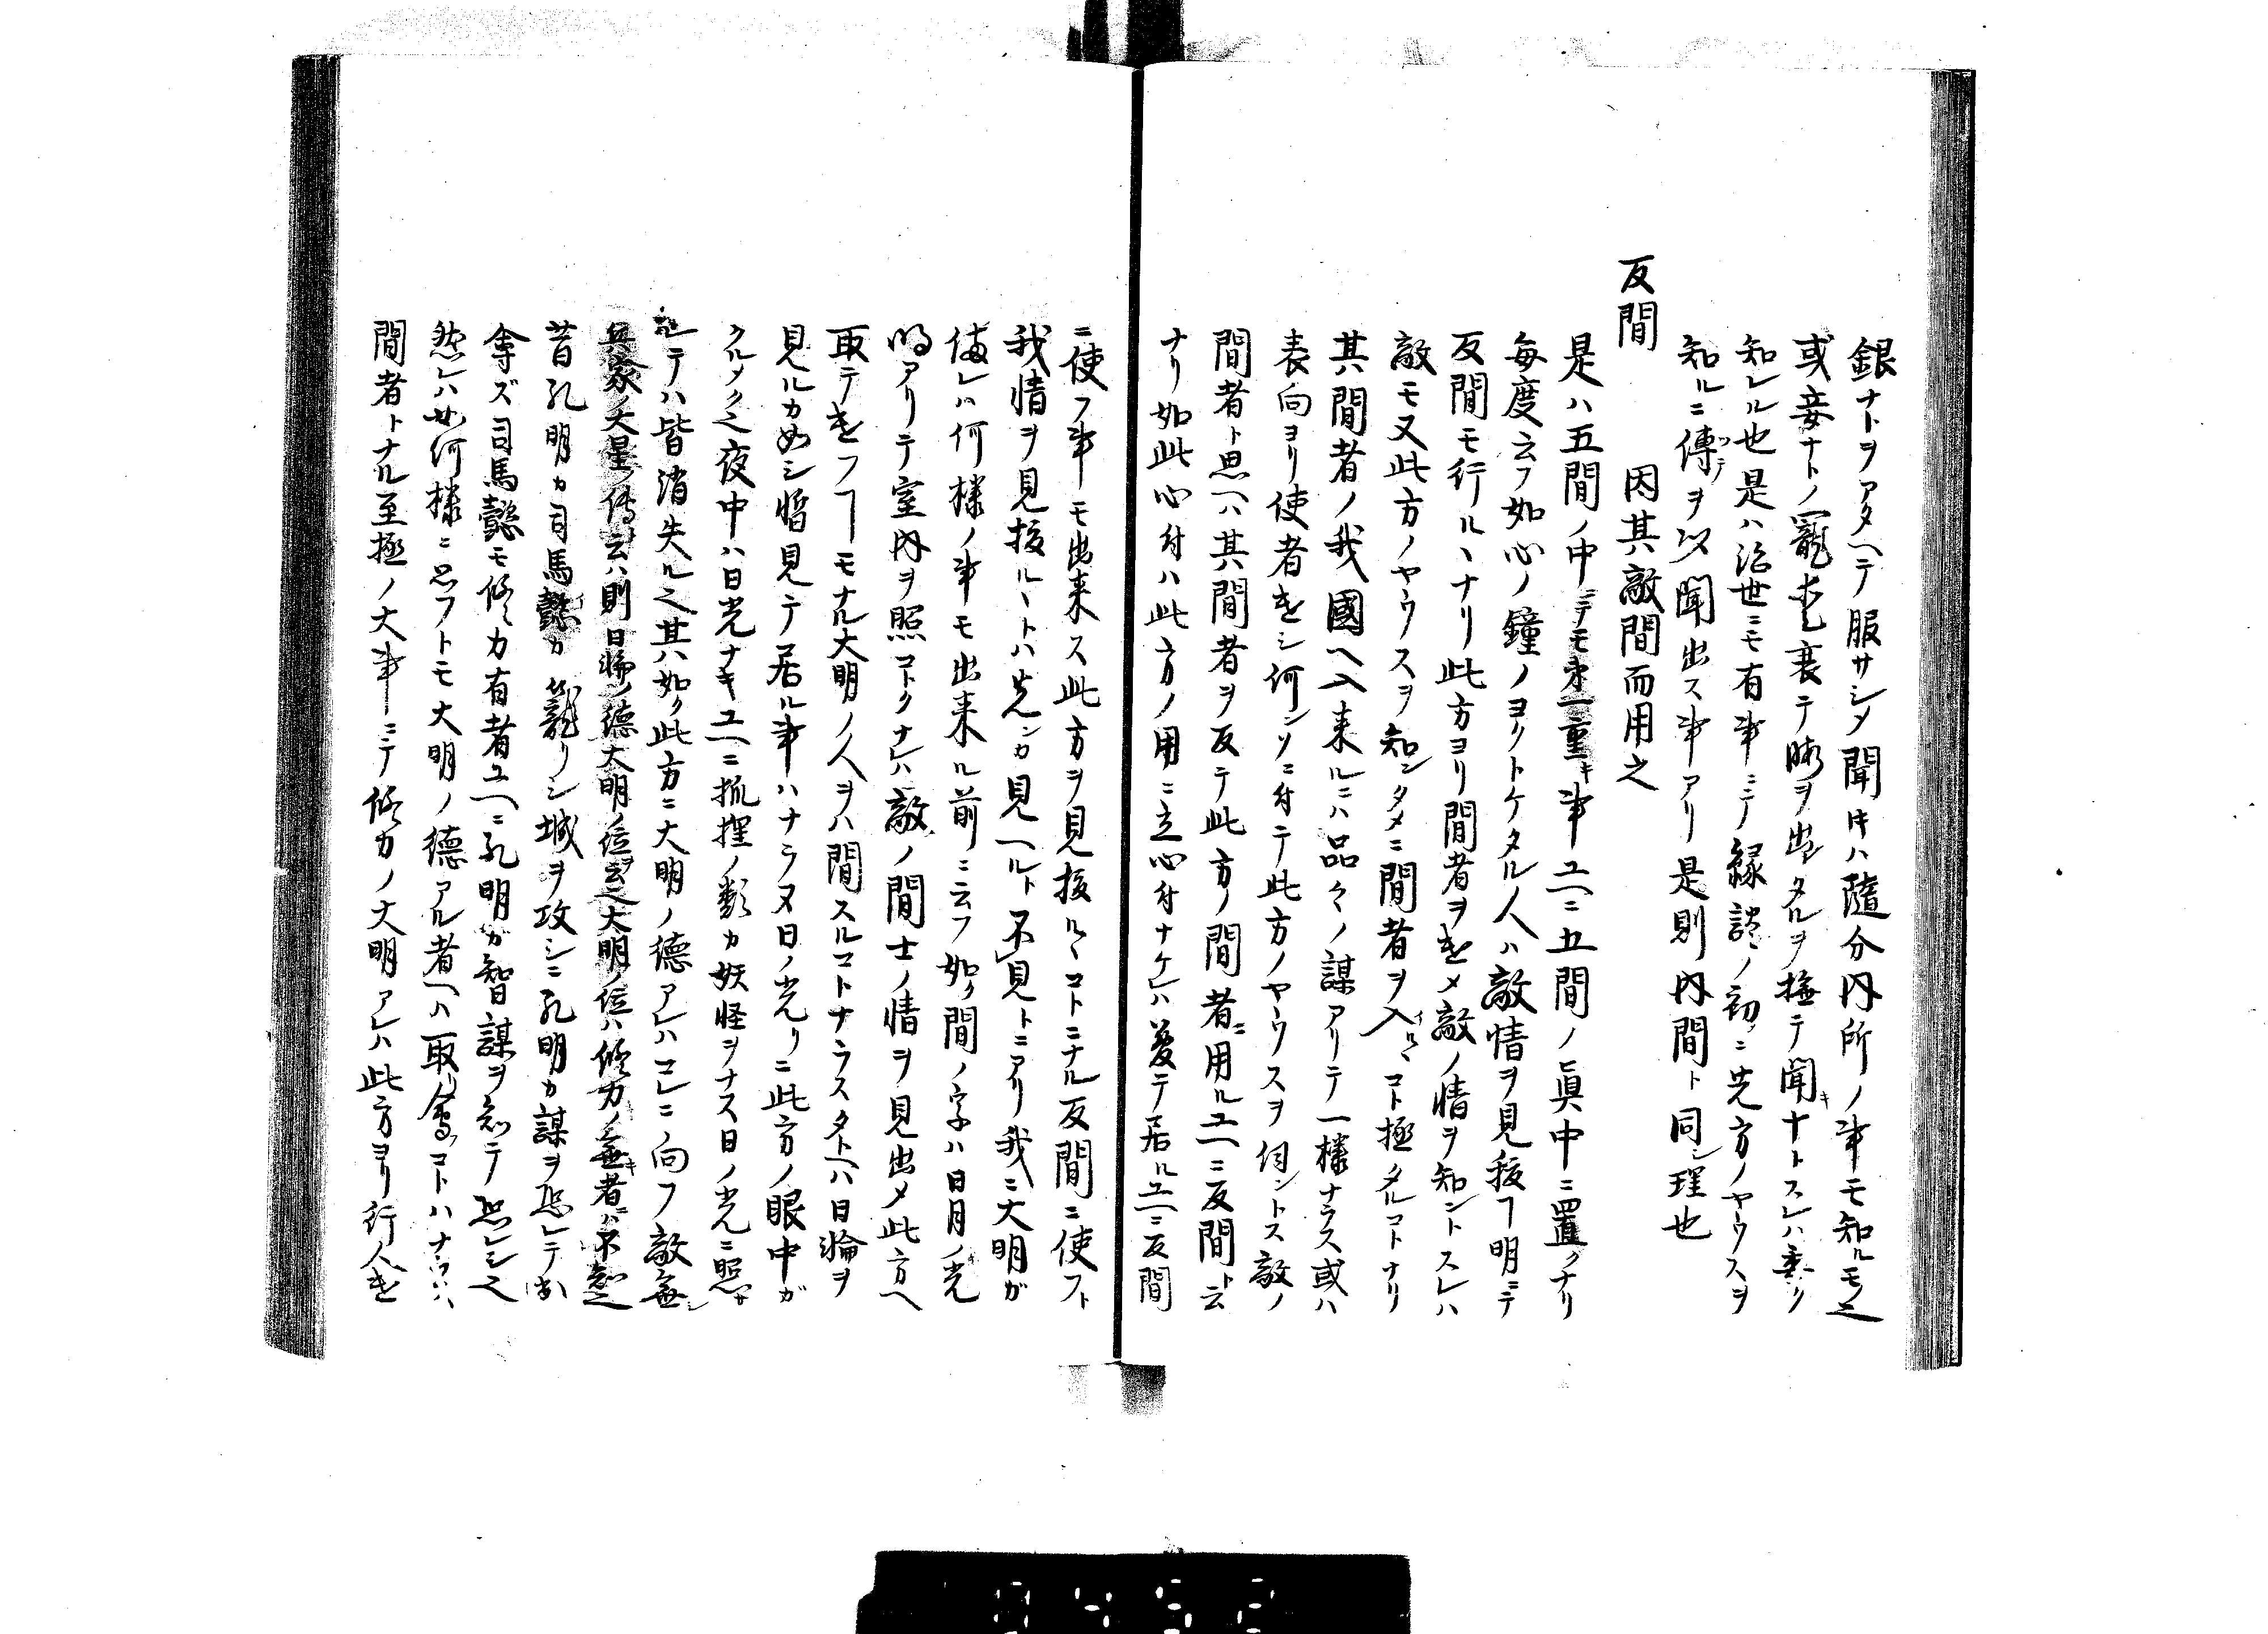 銀ナトヲアタヘテ服サシメ聞片ハ隨分内所ノ事モ知ルモノ也
或妾ナトノ寵愛衰テ暇ヲ出タルヲ撫テ聞ナトスレハ委ク
知レル也是ハ治世ニモ有事ニテ縁談ノ初ニ先方ノヤウスヲ
知ルニ傳ツテヲ以聞出ス事アリ是則内間ト同シ理也
反間　因其敵間而用之
是ハ五間ノ中ニテモ重キ事ユヘニ五間ノ眞中ニ置クナリ
毎度云フ如心ノ鐘ノヨクトケタル人ハ敵情ヲ見ルヿ明ニテ
反間モ行ルヽナリ此方ヨリ間者ヲ遣メ敵ノ情ヲ知ントスレハ
敵モ又此方ノヤウスヲ知ンタメニ間者ヲ入ルヽコト極タルコトナリ
其間者ノ我國ヘ入来ルニハ品々ノ謀アリテ一様ナラス或ハ
表向ヨリ使者ヲシ何ソニ付テ此方ノヤウスヲ伺ントス敵ノ
間者ト思ヘハ其間者ヲ反テ此方ノ間者ニ用ルユヘニ反間ト云
ナリ如此心付ハ此方ノ用ニ立心付ナケレハ居ルユヘニ反間
ニ使フ事モ出来ス此方ヲ見ルヽコトニナル反間ニ使フト
我情ヲ見ルヽトハ先ンカ見ヘルト不見トニアリ我ニ大明ガ
備レハ何様ノ事モ出来ル前ニ云フ如ク間ノ字ハ日月ノ光
明アリテ室内ヲ照コトクナレハ敵ノ間士ノ情ヲ見出メ此方ヘ
取テ遣フヿモナル大明ノ人ヲハ間スルコトナラスタトヘハ日輪ヲ
見ルカ如シ暫見テ居ル事ハナラヌ日ノ光リニ此方ノ眼中ガ
クルメク也夜中ハ日光ナキユヘニ狐狸ノ類カ妖怪ヲナス日ノ光ニ照サ
レテハ皆消失ル也其ハ如ク此方ニ大明ノ德アレハコレニ向フ敵無シ
兵家ノ大星ノ傳ト云ハ則日輪ノ德大明ノ位ヲ云也大明ノ位ハ修力ノ無キ者ハ不知也
昔孔明カ司馬懿カ籠リシ城ヲ攻シニ孔明カ謀ヲ恐レテ出
會ズ司馬懿モ修力有者ユヘニ孔明カ智謀ヲ知テ恐レシ也
然レハ如何様ニ思フトモ大明ノ德アル者ヘハ取會コトハナラヌ
間者トナル至極ノ大事ニテ修力ノ大明アレハ此方ヨリ行人ヲ